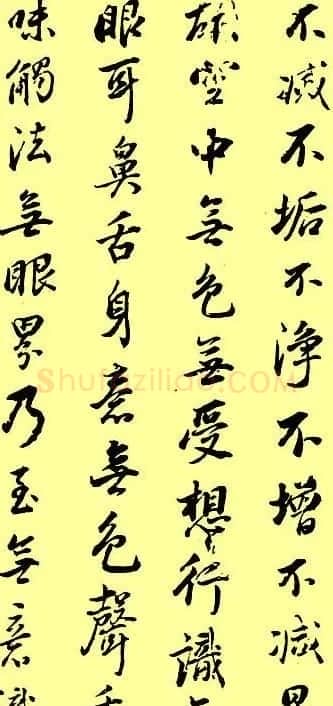 不滅不垢不淨不增不減
故空中無色無受想行識
眼耳鼻舌身意無色聲
味觸法無眼界乃至無意
Shufaziliao.COM